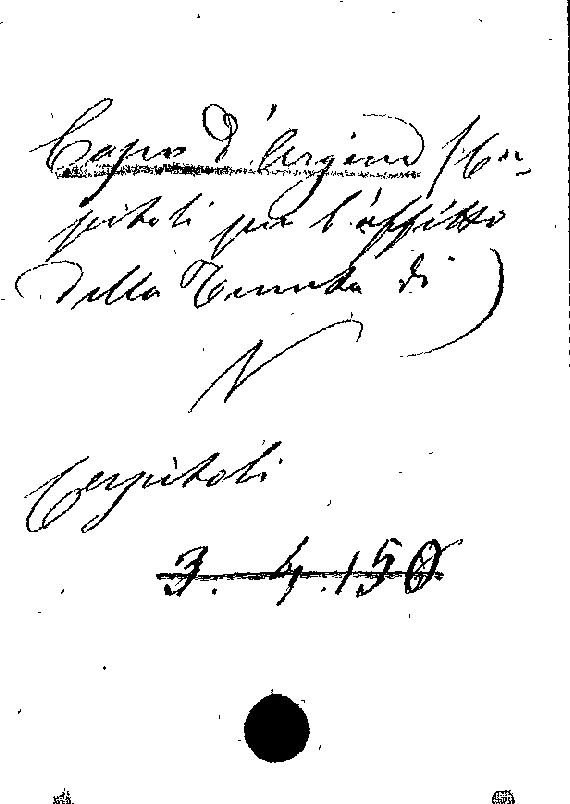 Capo d'Argine (Ca-
pitoli per l'affitto
della Tenuta di)
V
Capitoli
3. 4.150